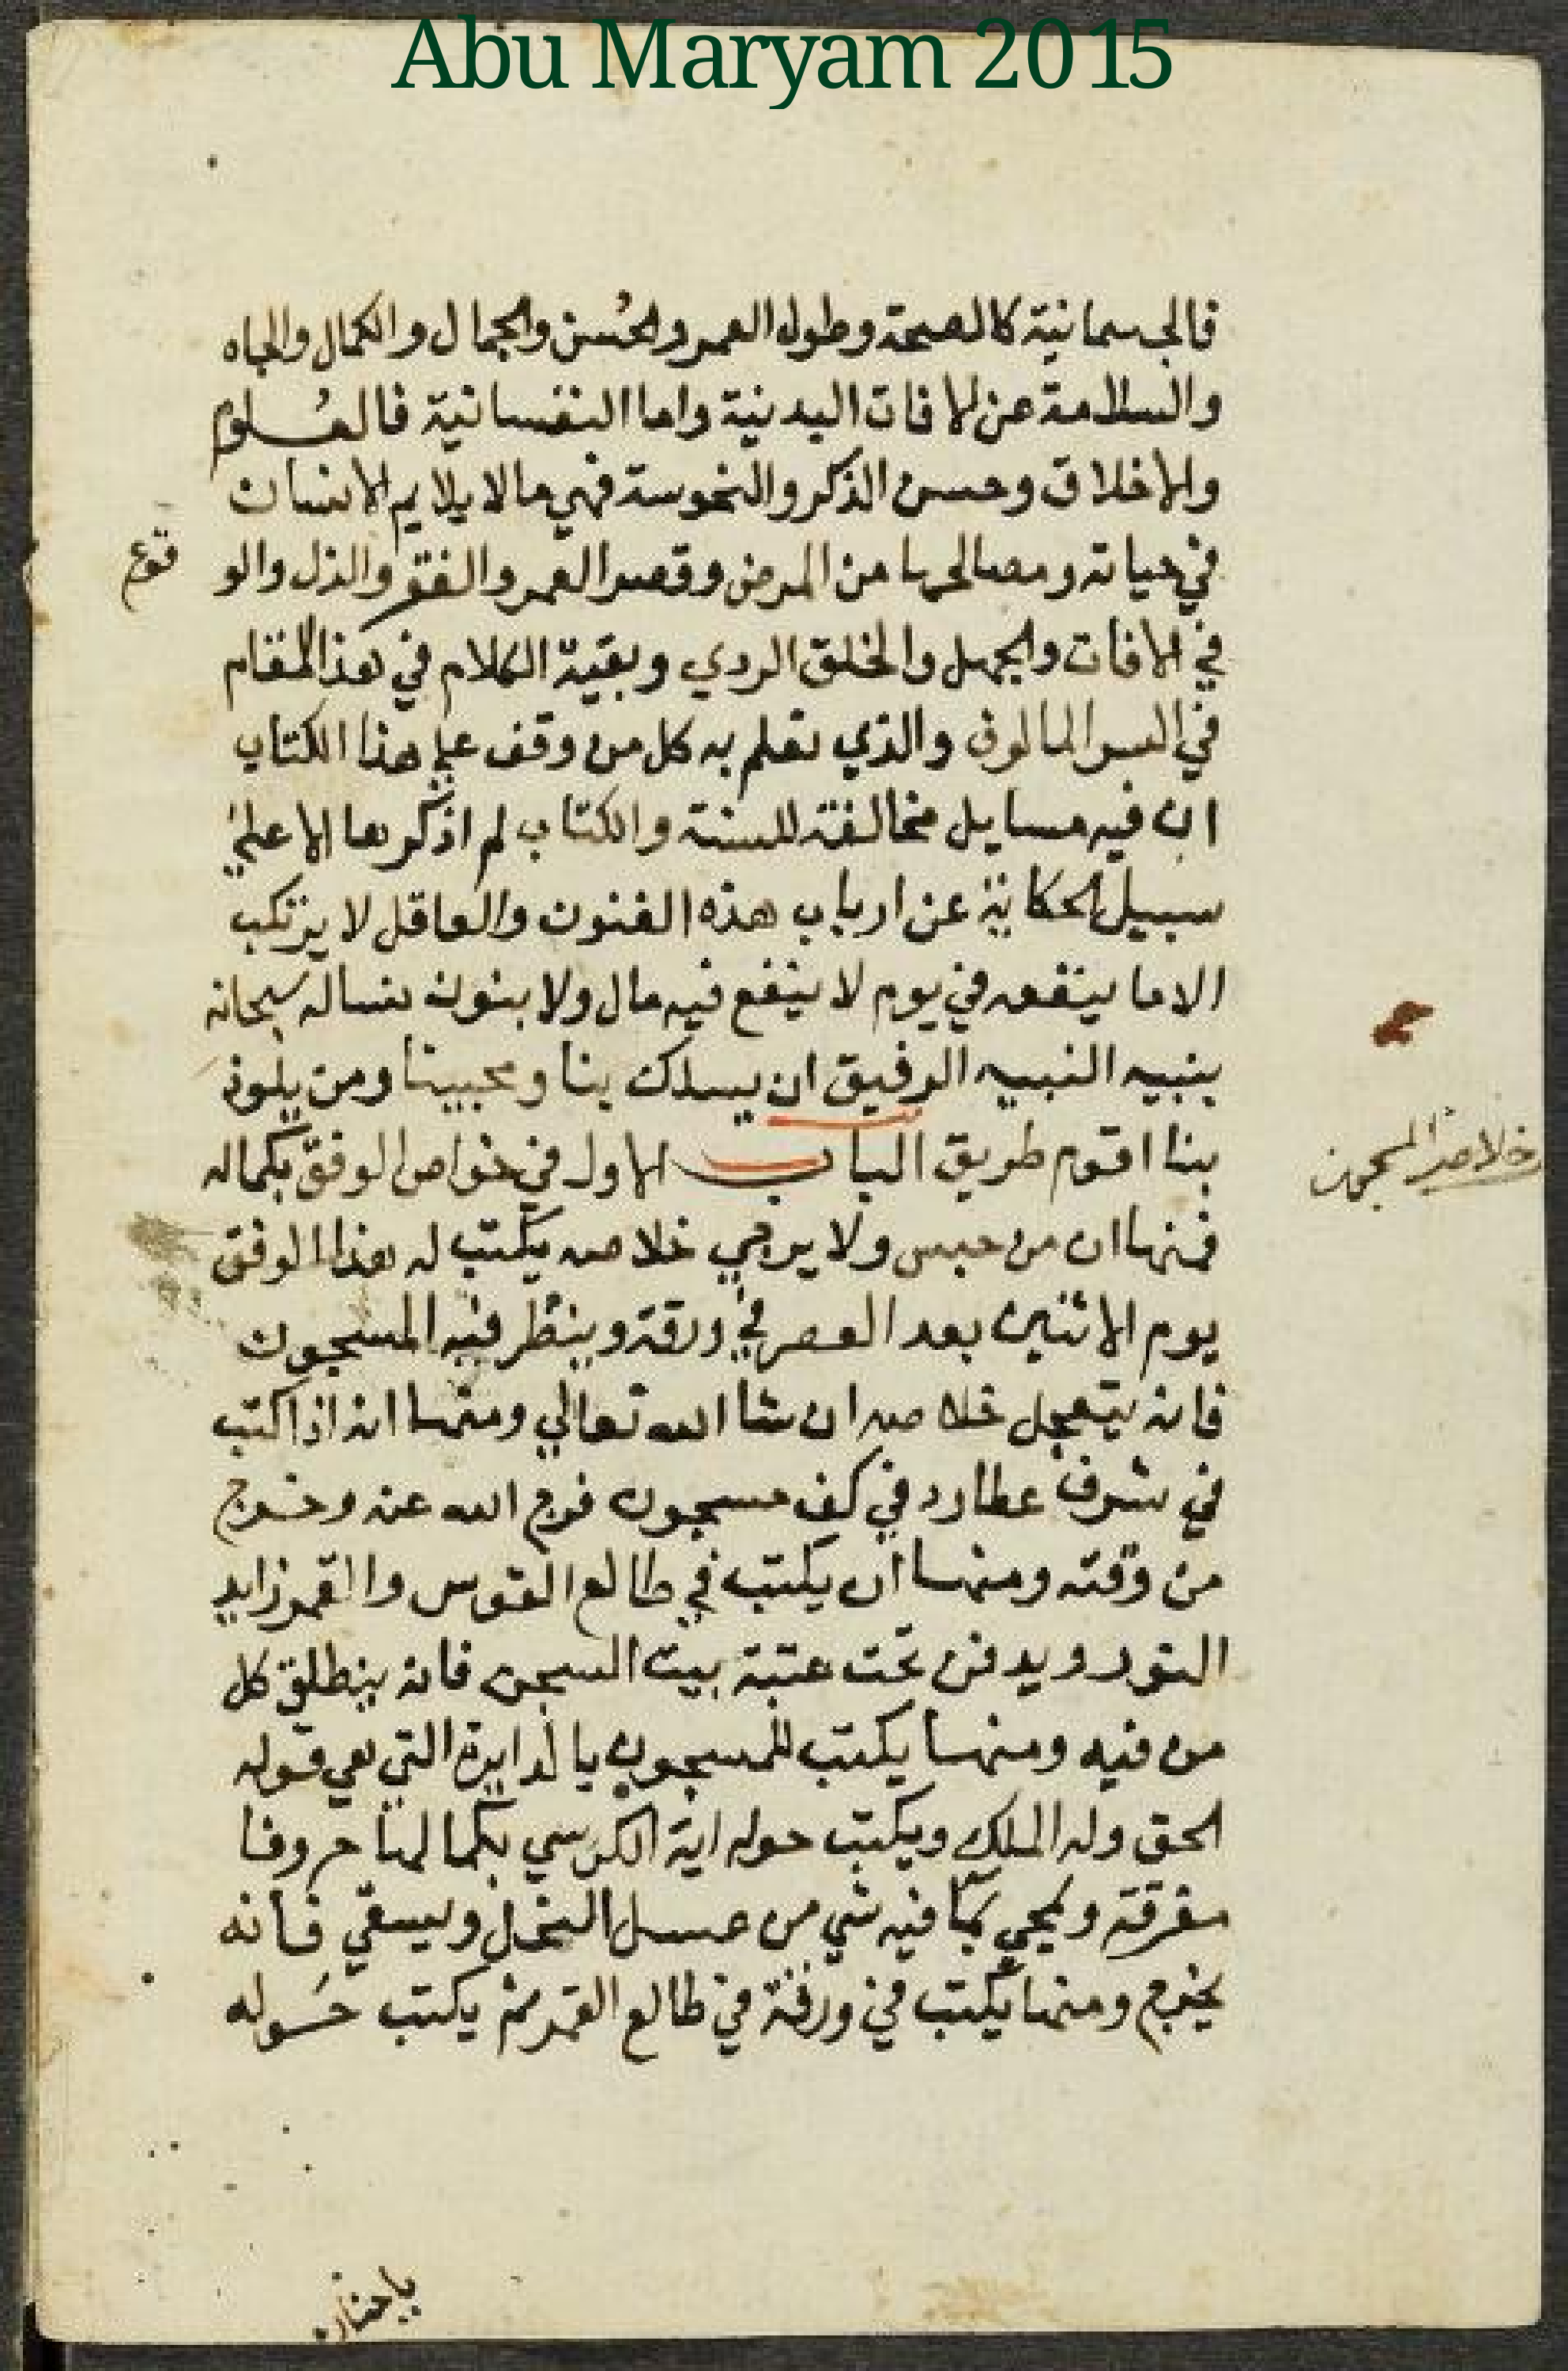 Abu Maryam 2015
فالجسمانية كالصحة وطول العمر والحُسن والجمال والكمال والجاه
والسلامة عن الافات البدنية واما النفسانية فالعُلوم
والاخلاق وحسن الذكر والنحوسة فهي ما لا يلايم الانسان
في حياته ومصالحها من المرض وقصر العمر والفقر والذل والو
قوع
في الافات والجهل والخلق الردي وبقية الكلام في هذا المقام
في السر المالوف والذي نعلم به كل من وقف علي هذا الكتاب
ان فيه مسايل مخالفة للسنة والكتاب لم اذكرها الا علي
سبيل الحكاية عن ارباب هذه الفنون والعاقل لا يرتكب
الا ما ينفعه في يوم لا ينفع فيه مال ولا بنون نساله سبحانه
بنبيه النبيه الرفيق ان يسلك بنا ومحبينا ومن يلوذ
بنا اقوم طريق الباب الاول في خواص الوفق بكماله
خلاص المسجون
فمنها ان من حبس ولا يرجي خلاصه يكتب له هذا الوفق
يوم الاثنين بعد العصر في ورقة وينظر فيه المسجون
فانه يتعجل خلاصه ان شا الله تعالي ومنها انه اذا كتب
في شرف عطارد في كف مسجون فرج الله عنه وخرج
من وقته ومنها ان يكتب في طالع القوس والقمر زايد
النور ويدفن تحت عتبة بيت السجن فانه ينطلق كل
من فيه ومنها يكتب للمسجون بالدايرة التي هي قوله
الحق وله الملك ويكتب حوله اية الكرسي بكمالها حروفا
مفرقة ويمحي بما فيه شي من عسل النحل ويسقي فانه
يخرج ومنها يكتب في ورقة في طالع القمر ثم يكتب حَوله
ياحنان